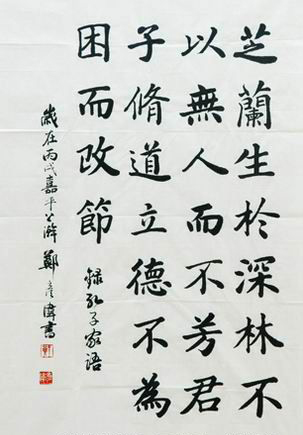 芝蘭生於深林不
以無人而不芳君
子脩道立德不為
困而改節
錄孔子家語
歲在丙戌嘉平公澣鄭彥偉書